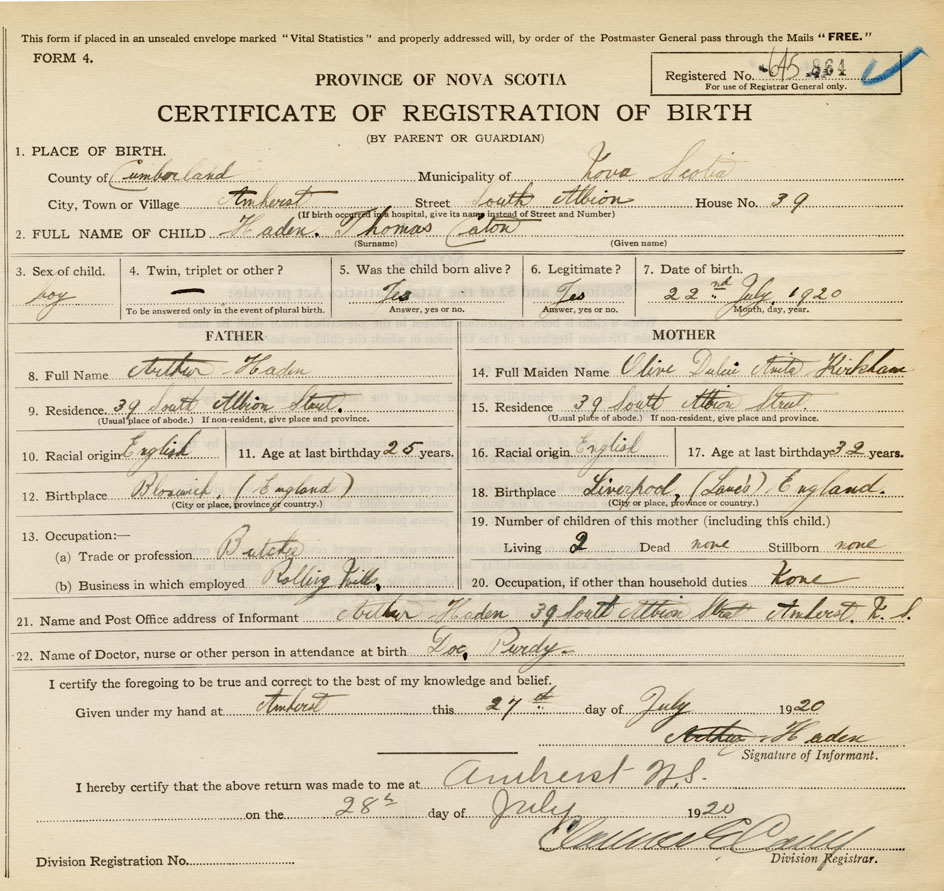 This form if placed in an unsealed envelope marked "Vital Statistics" and properly addressed will, by order of the Postmaster General pass through the Mails "FREE."
FORM 4.
PROVINCE OF NOVA SCOTIA
Registered No. 864
For use of Registrar General only.
CERTIFICATE OF REGISTRATION OF BIRTH
(BY PARENT OR GUARDIAN)
1. PLACE OF BIRTH.
County of Cumberland Municipality of Nova Scotia
City, Town or Village Amherst Street South Albion House No. 39
(If birth occurred in a hospital, give its name instead of Street and Number)
2. FULL NAME OF CHILD Haden. Thomas Caton
(Surname) (Given name)
3. Sex of child. 4. Twin, triplet or other? 5. Was the child born alive? 6. Legitimate? 7. Date of birth.
boy — Yes Yes 22nd July, 1920
To be answered only in the event of plural birth. Answer, yes or no. Answer, yes or no. Month, day, year.
FATHER MOTHER
8. Full Name Arthur Haden 14. Full Maiden Name Olive Dulcie Anita Kirkham
9. Residence 39 South Albion Street. 15. Residence 39 South Albion Street.
(Usual place of abode.) If non-resident, give place and province. (Usual place of abode.) If non-resident, give place and province.
10. Racial origin English 11. Age at last birthday 25 years. 16. Racial origin English 17. Age at last birthday 32 years.
12. Birthplace Bloxwich, (England) 18. Birthplace Liverpool, (Lancs) England.
(City or place, province or country.) (City or place, province or country.)
13. Occupation:— 19. Number of children of this mother (including this child.)
(a) Trade or profession Butcher Living 2 Dead none Stillborn none
(b) Business in which employed Rolling Mills. 20. Occupation, if other than household duties None
21. Name and Post Office address of Informant Arthur Haden 39 South Albion Street Amherst. N. S.
22. Name of Doctor, nurse or other person in attendance at birth Doc, Purdy.
I certify the foregoing to be true and correct to the best of my knowledge and belief.
Given under my hand at Amherst this 27th day of July 1920
Arthur Haden
Signature of Informant.
I hereby certify that the above return was made to me at Amherst N.S.
on the 28th day of July 1920
Clarence
Division Registration No. Division Registrar.